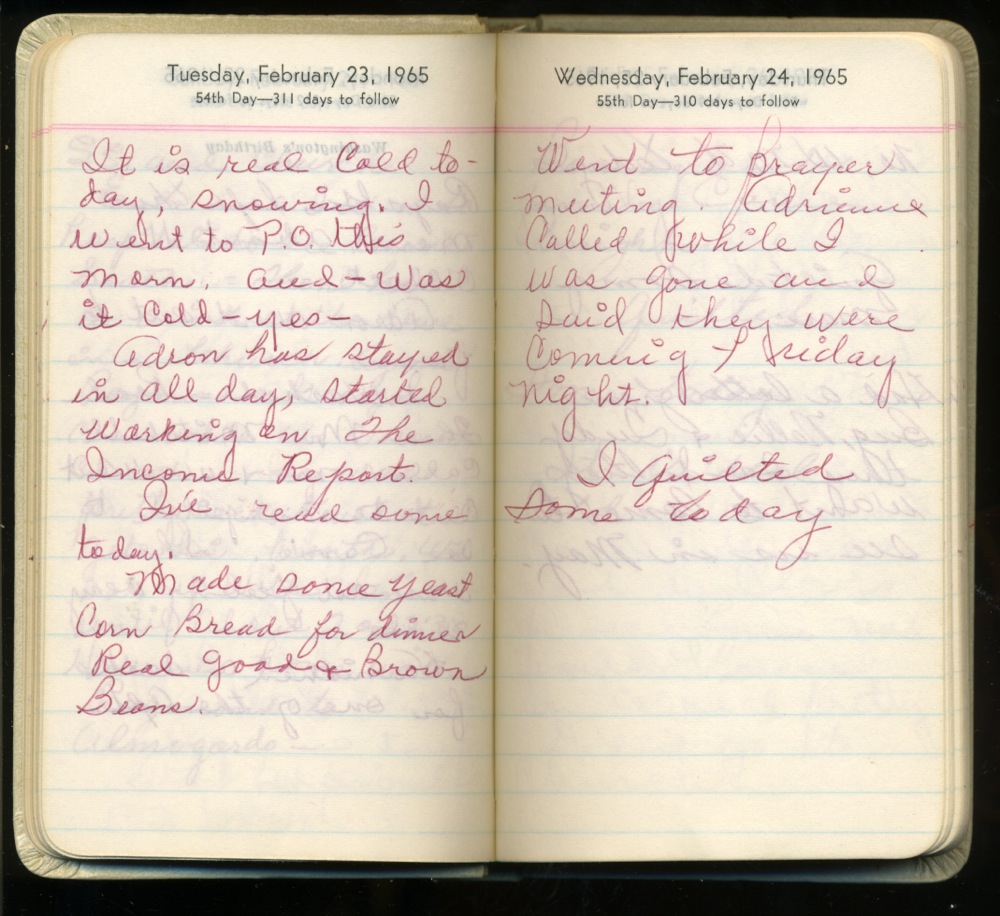 Tuesday, February 23, 1965
54th Day—311 days to follow
It is real Cold to-
day, snowing. I
went to P.O. this
morn. and—was
it Cold—yes—
Adron has stayed
in all day, started
working on the
Income Report.
I've read some
today.
Made some yeast
Corn Bread for dinner
Real good & Brown
Beans.
Almogordo—
Wednesday, February 24, 1965
55th Day—310 days to follow
Went to prayer
meeting. Adrienne
Called while I
was gone and
said they were
Coming Friday
night.
I quilted
some today